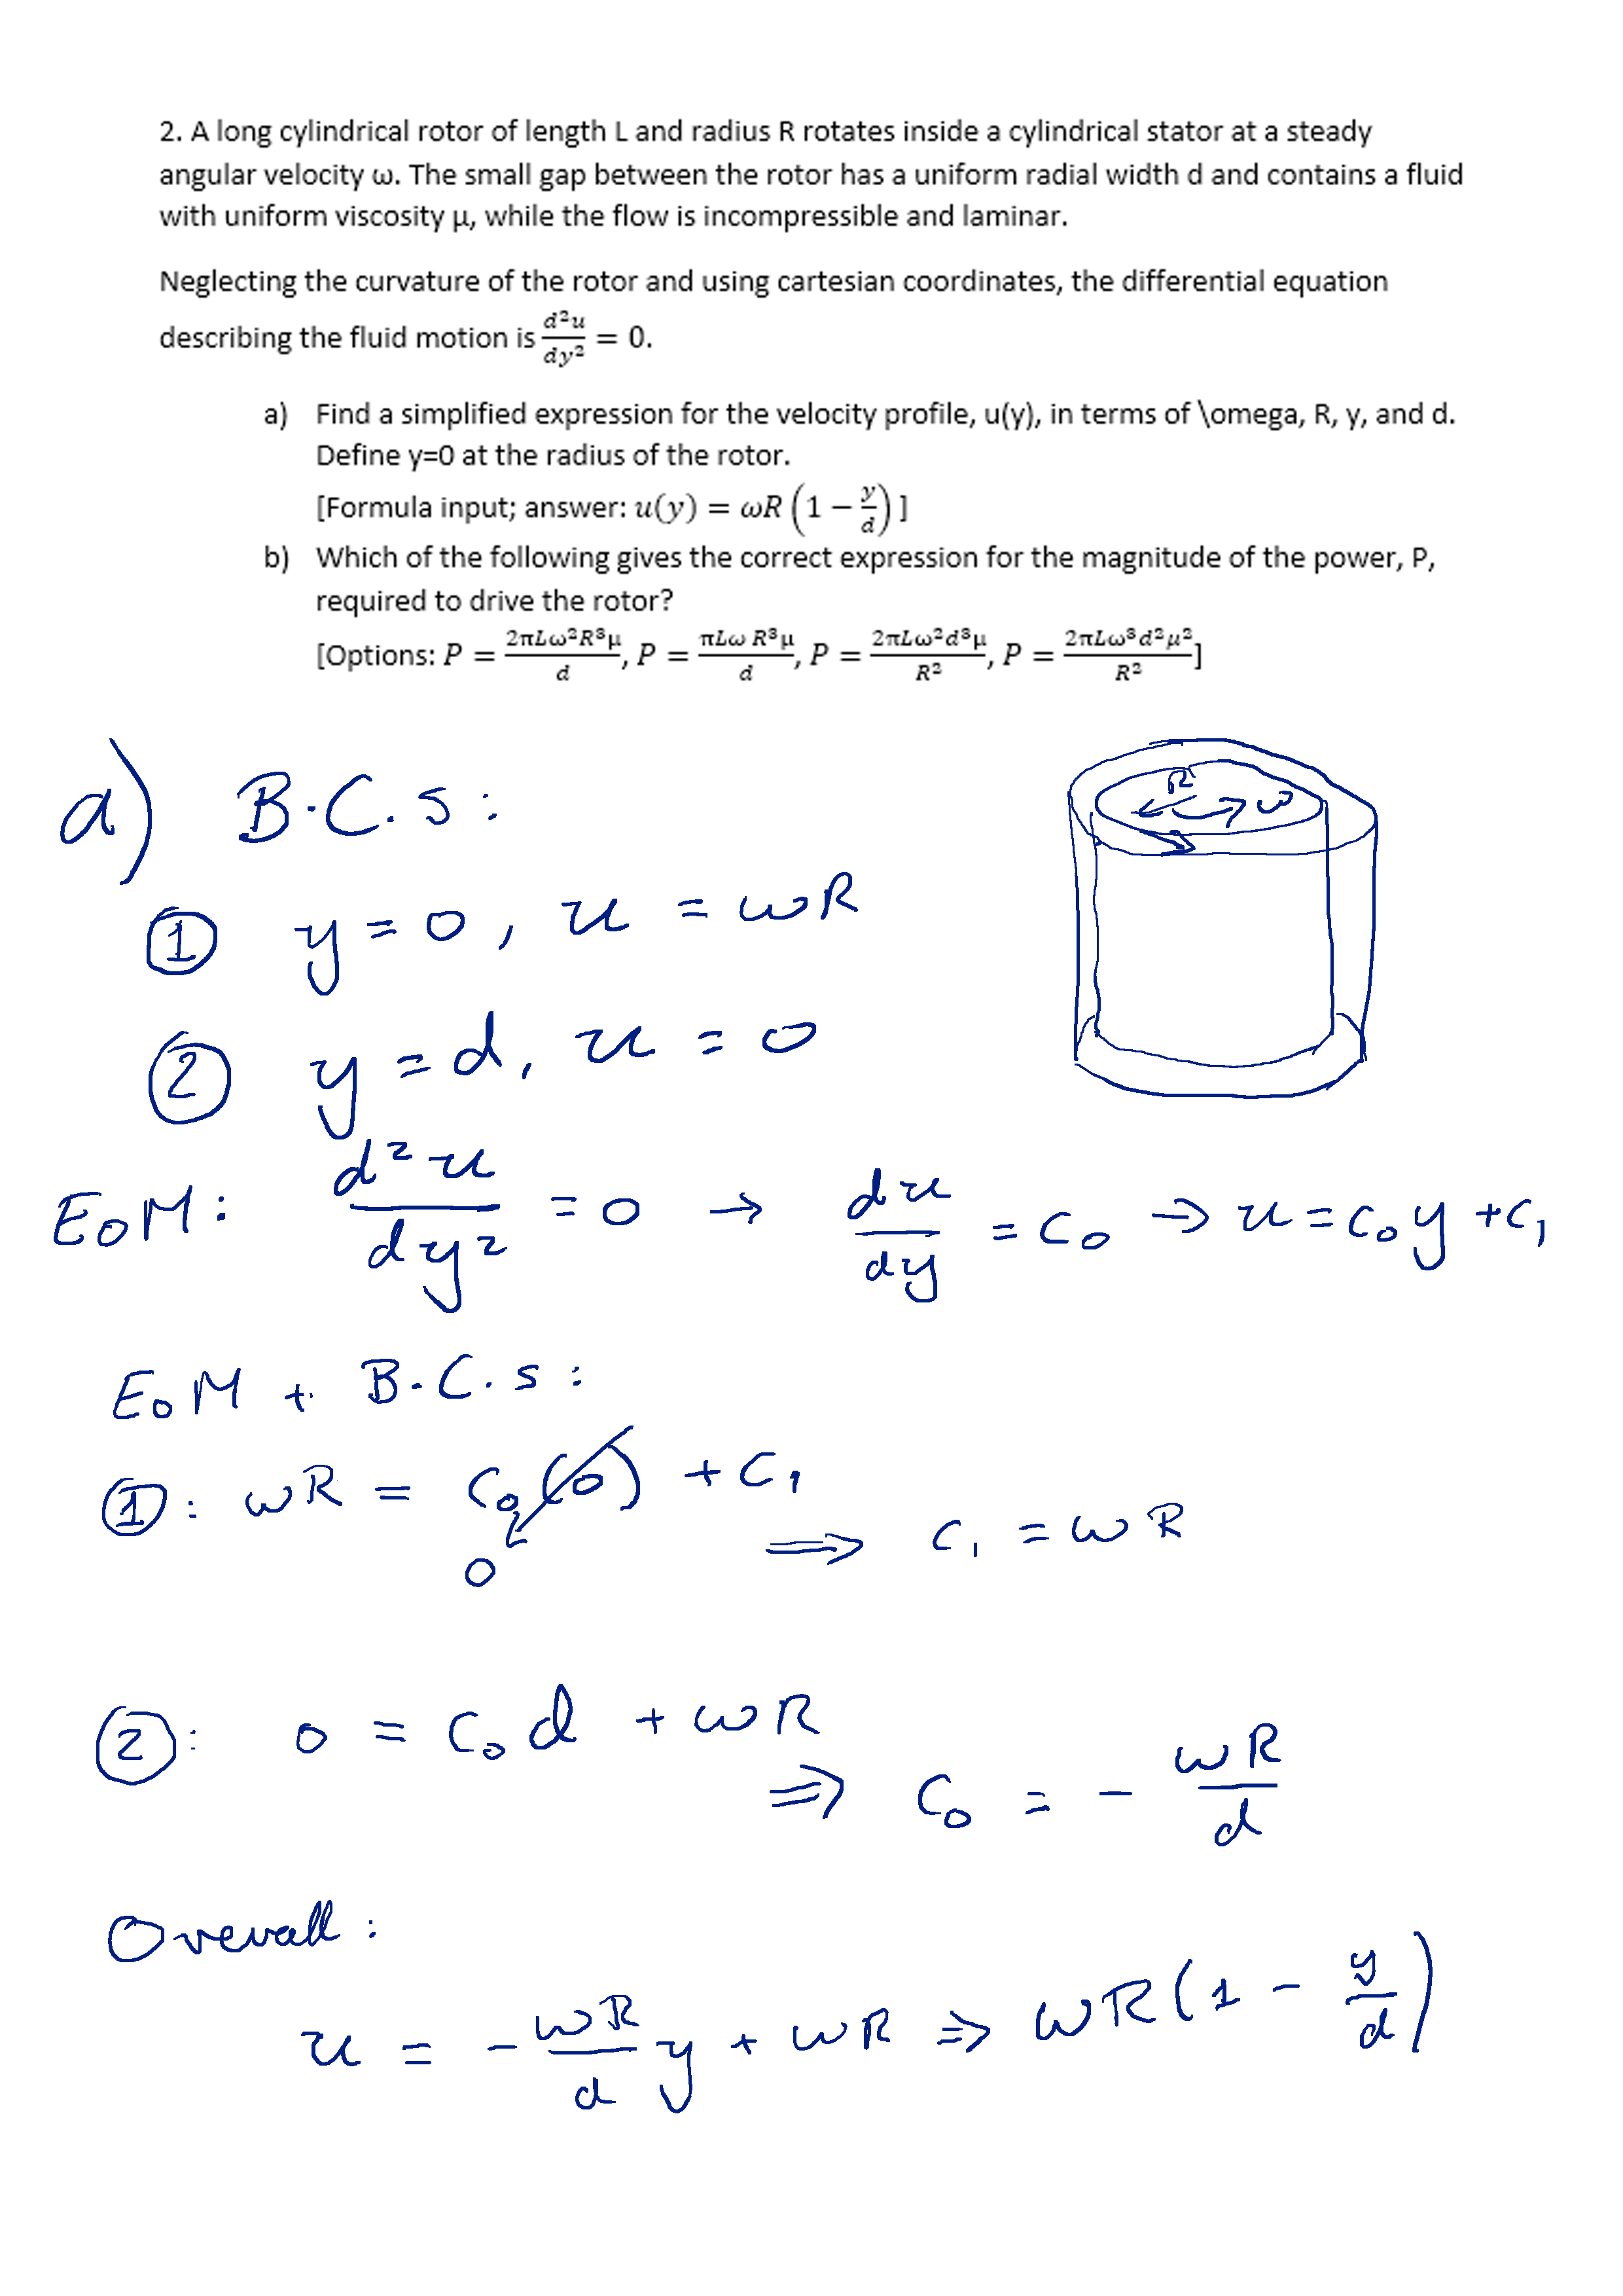 2. A long cylindrical rotor of length L and radius R rotates inside a cylindrical stator at a steady
angular velocity ω. The small gap between the rotor has a uniform radial width d and contains a fluid
with uniform viscosity μ, while the flow is incompressible and laminar.
Neglecting the curvature of the rotor and using cartesian coordinates, the differential equation
describing the fluid motion is d²u/dy² = 0.
a) Find a simplified expression for the velocity profile, u(y), in terms of \omega, R, y, and d.
Define y=0 at the radius of the rotor.
[Formula input; answer: u(y) = ωR (1 − y/d)]
b) Which of the following gives the correct expression for the magnitude of the power, P,
required to drive the rotor?
[Options: P = 2πLω²R³μ/d, P = πLω R³μ/d, P = 2πLω²d³μ/R², P = 2πLω³d²μ²/R²]
a) B.C.s:
R ω
① y=0, u = ωR
② y=d, u = 0
EoM: d²u/dy² = 0 → du/dy = C₀ → u = C₀y + C₁
EoM + B.C.s:
①: ωR = C₀(0) + C₁
0
⟹ C₁ = ωR
②: 0 = C₀d + ωR
⟹ C₀ = − ωR/d
Overall:
u = − ωR/d y + ωR ⟹ ωR(1 − y/d)